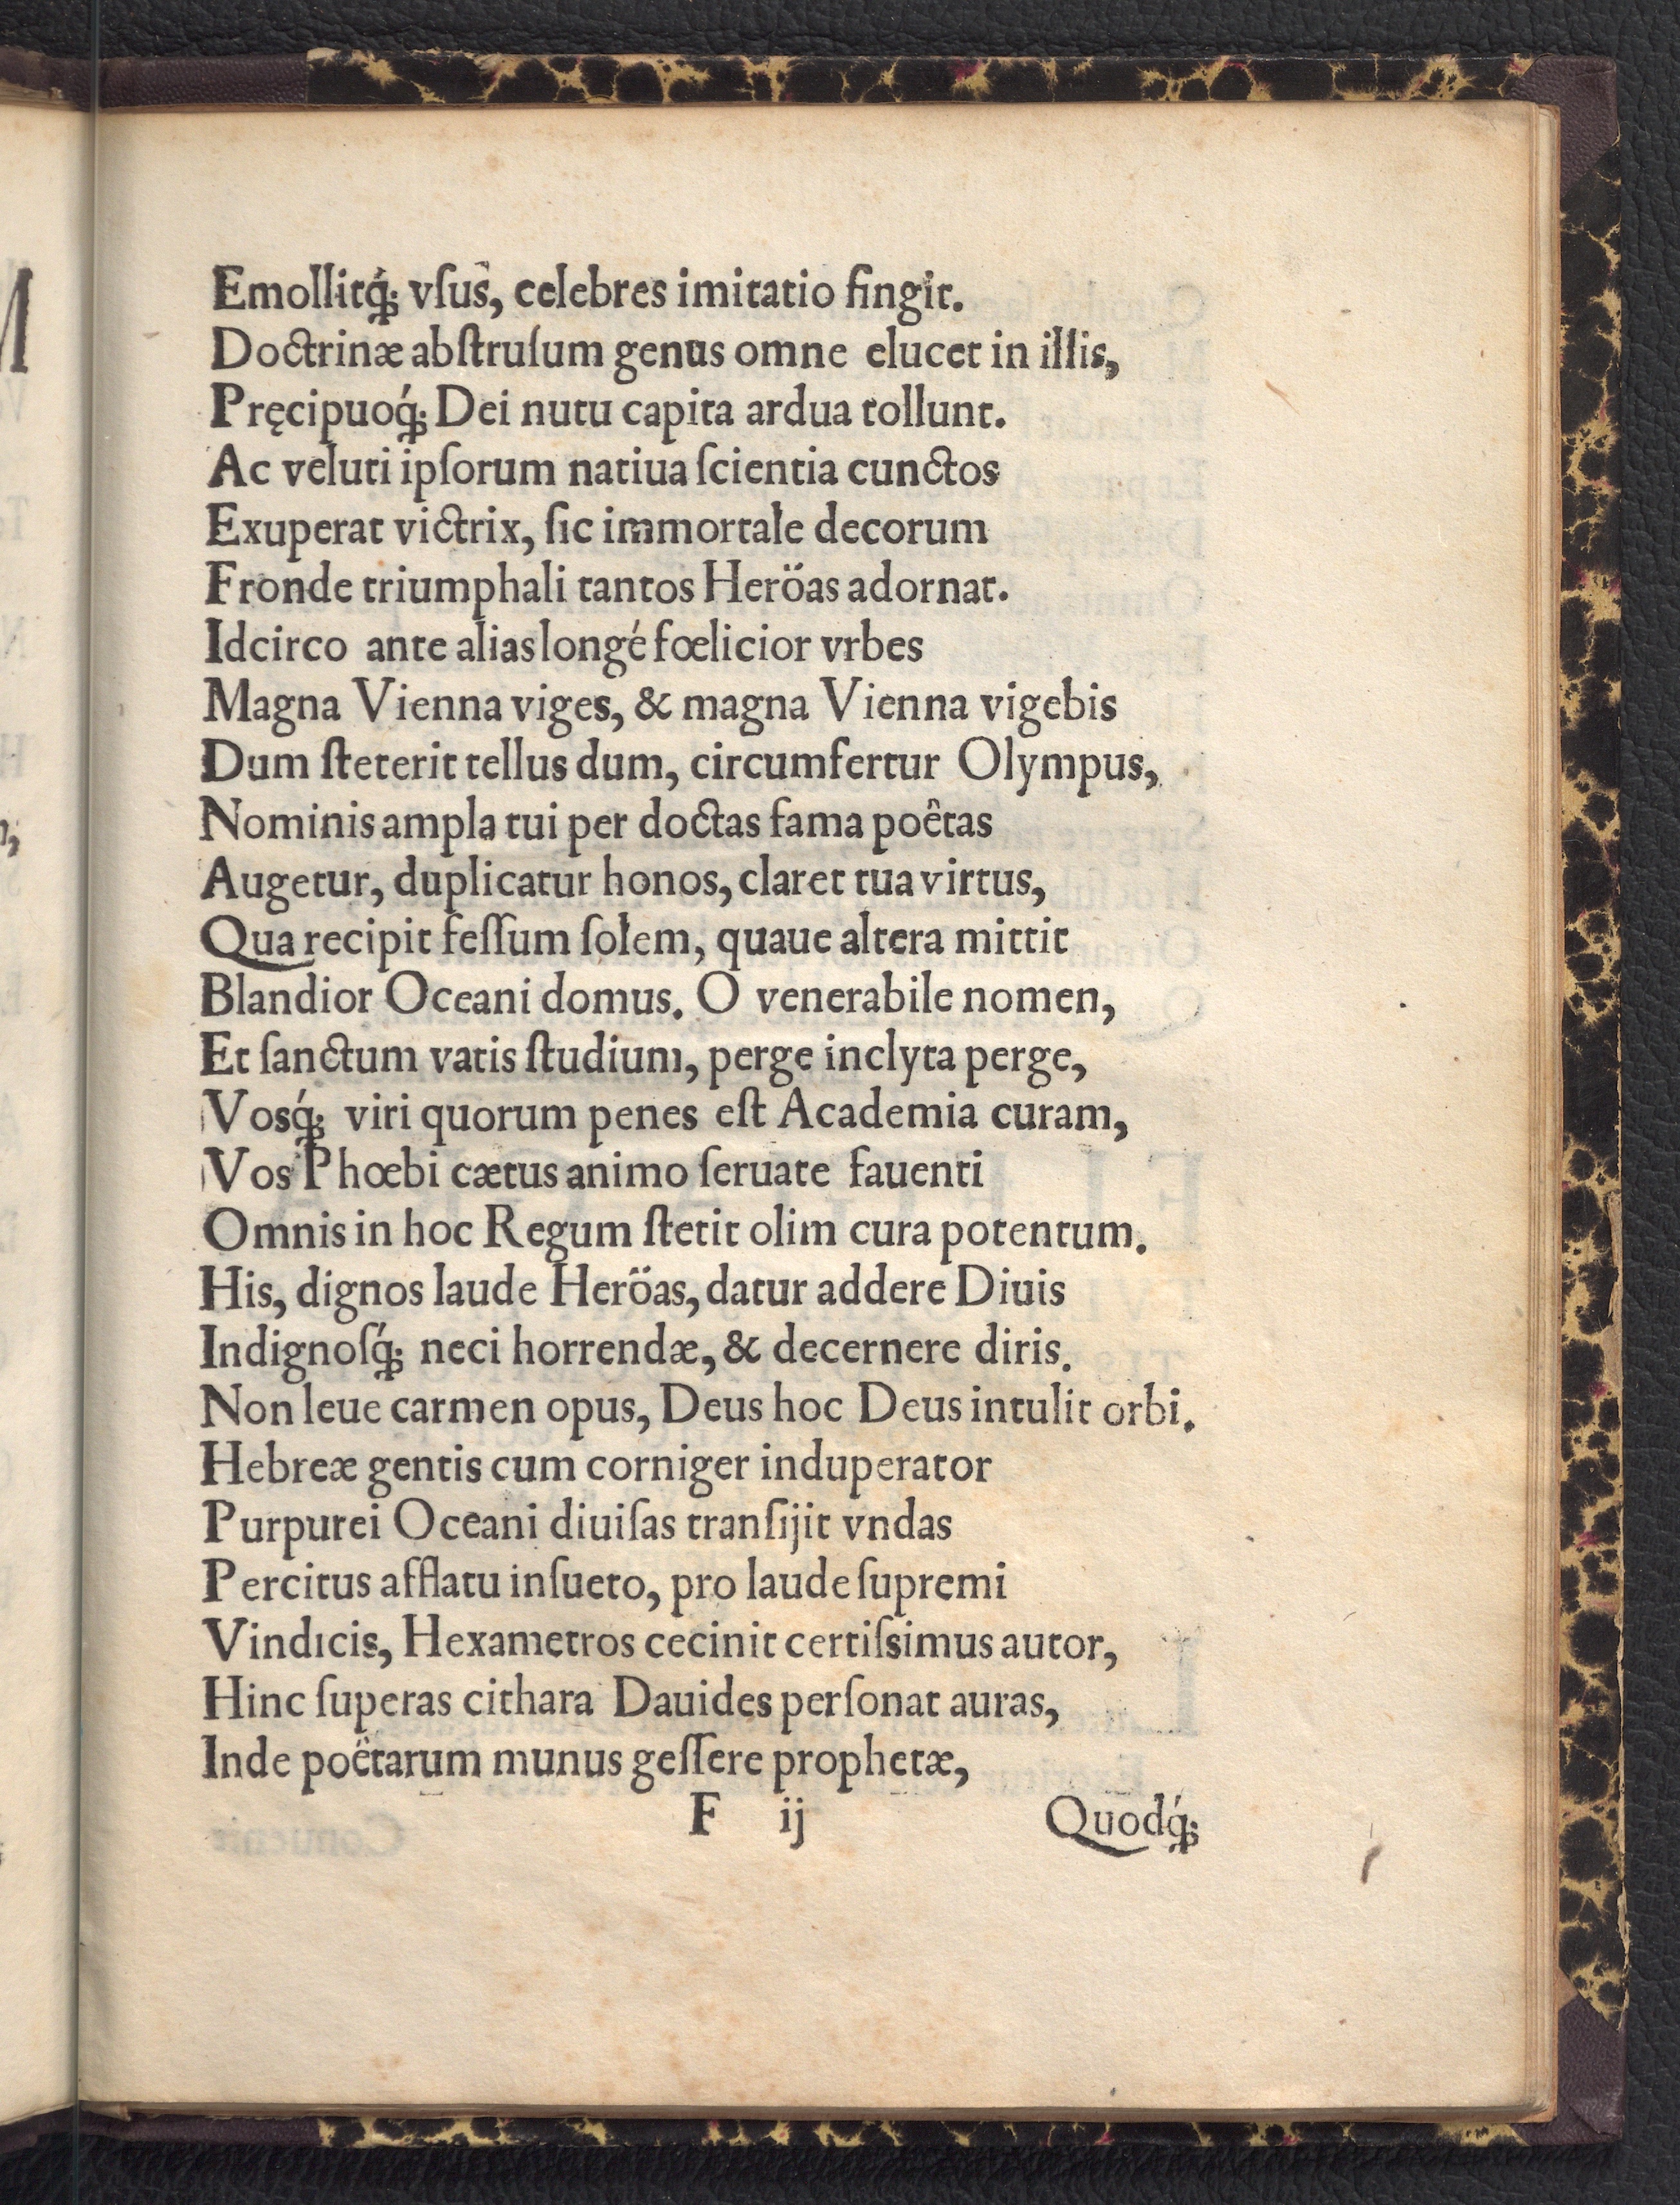 Emollitq́; vſus, celebres imitatio fingit.
Doctrinæ abſtruſum genus omne elucet in illis,
Pręcipuoq́; Dei nutu capita ardua tollunt.
Ac veluti ipſorum natiua ſcientia cunctos
Exuperat victrix, ſic immortale decorum
Fronde triumphali tantos Heröas adornat.
Idcirco ante alias longé fœlicior vrbes
Magna Vienna viges, & magna Vienna vigebis
Dum ſteterit tellus dum, circumfertur Olympus,
Nominis ampla tui per doctas fama poêtas
Augetur, duplicatur honos, claret tua virtus,
Qua recipit feſſum ſolem, quaue altera mittit
Blandior Oceani domus. O venerabile nomen,
Et ſanctum vatis ſtudium, perge inclyta perge,
Vosq́; viri quorum penes eſt Academia curam,
Vos Phœbi cætus animo ſeruate fauenti
Omnis in hoc Regum ſtetit olim cura potentum.
His, dignos laude Heröas, datur addere Diuis
Indignoſq́; neci horrendæ, & decernere diris.
Non leue carmen opus, Deus hoc Deus intulit orbi.
Hebreæ gentis cum corniger induperator
Purpurei Oceani diuiſas tranſijt vndas
Percitus afflatu inſueto, pro laude ſupremi
Vindicis, Hexametros cecinit certiſsimus autor,
Hinc ſuperas cithara Dauides perſonat auras,
Inde poëtarum munus geſſere prophetæ,
F ij Quodq́;